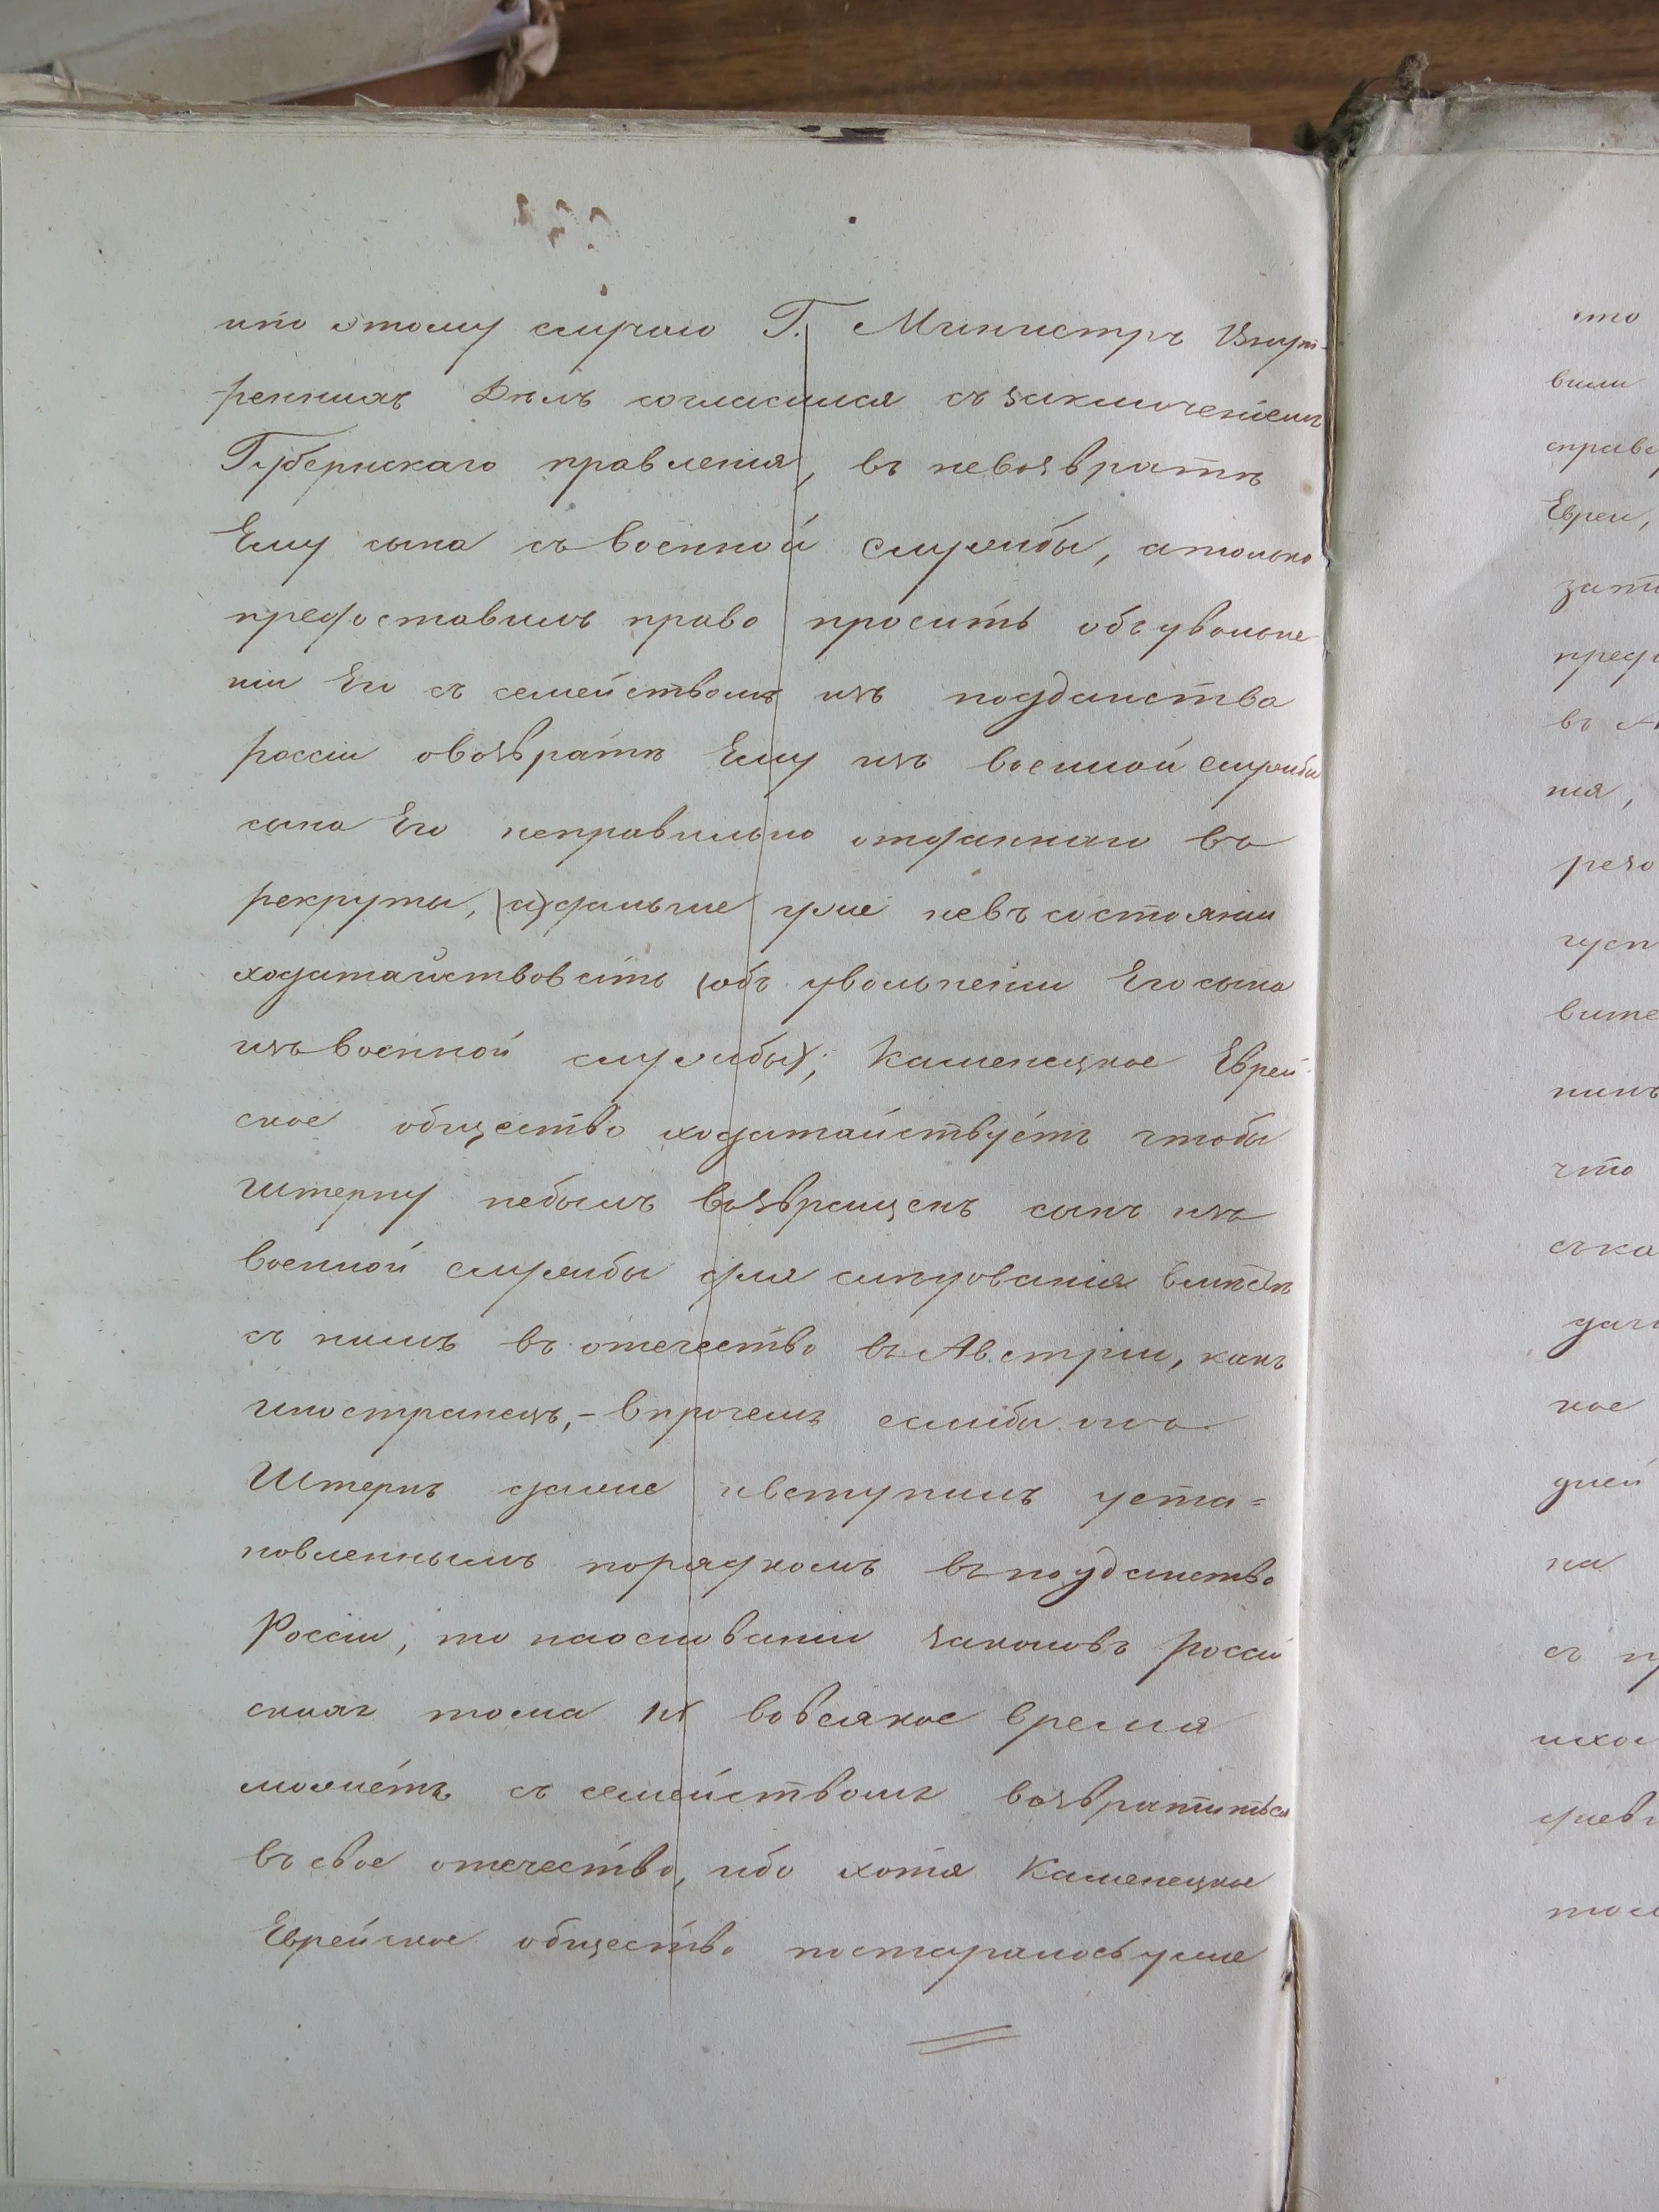 ипо этому случаю Г. Министръ Внут-
реннихъ Дѣлъ согласился съ заключеніемъ
Губернскаго правленія, въ невозвратѣ
Ему сына съ военной службы, атолько
предоставилъ право просить объ увольне-
ніи Его съ семействомъ изъ подданства
россіи овозвратѣ Ему изъ военной службы
сына Его неправильно отданнаго въ
рекруты, (а) дальше уже невъ состояніи
ходатайствовать (объ увольненіи Его сына
изъ военной службы); Каменецкое Еврей-
ское общество ходатайствуетъ чтобы
Штерну небылъ возвращенъ сынъ изъ
военной службы для слѣдованія вмѣстѣ
съ нимъ въ отечество въ Австріи, какъ
иностранецъ,- впрочемъ еслибы онъ
Штернъ даже ивступилъ уста=
новленнымъ порядкомъ въ подданство
Россіи, то наоснованіи законовъ россій
скихъ тома IX вовсякое время
можетъ съ семействомъ возвратиться
въ свое отечество, ибо хотя Каменецкое
Еврейское общество постаралось уже
что
вили
справе
Евреи,
зати
предо
въ А
нія,
резо
вите
нинъ
что
съка
дачи
кое
дней
на
съ пр
исхо